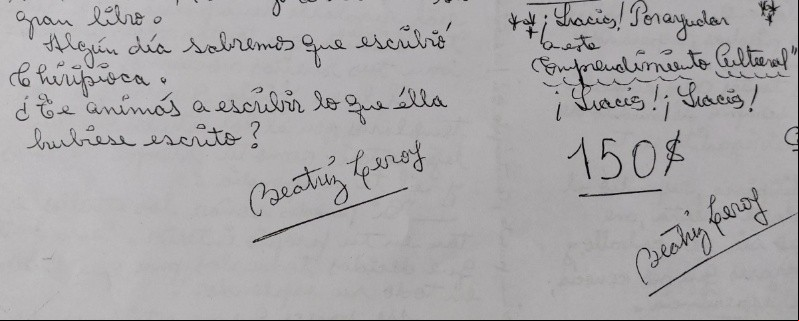 gran libro.
Algún día sabremos que escribió
Chiripioca.
¿Te animás a escribir lo que élla
hubiese escrito?
Beatriz Leroy
** ¡Gracias! Por ayudar **
a este
Emprendimiento Cultural"
¡Gracias! ¡Gracias!
150$
Beatriz Leroy